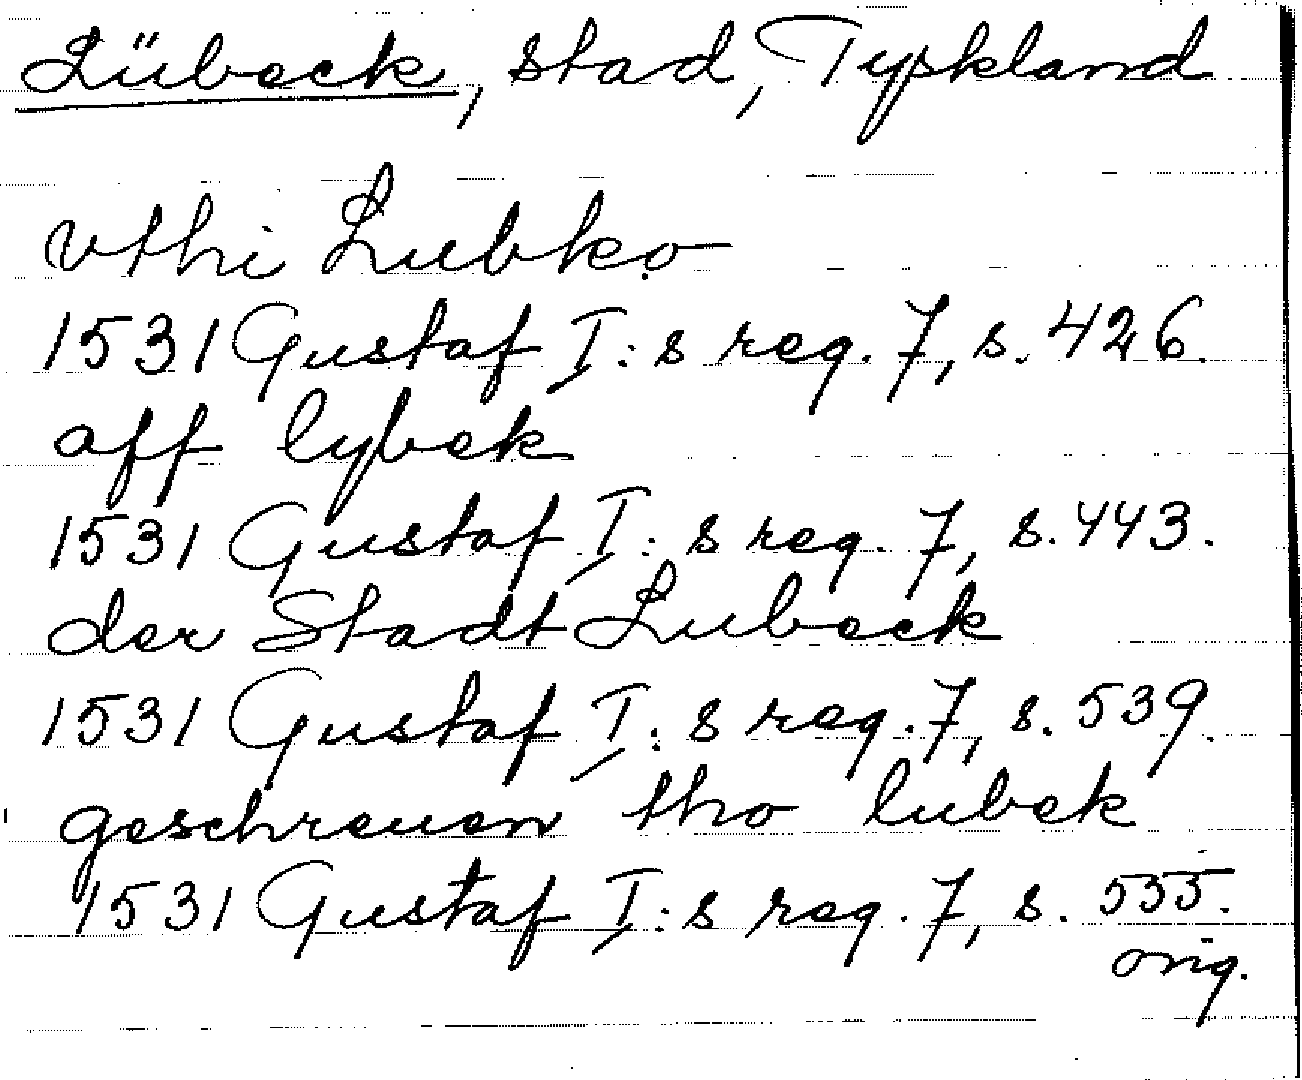 Lübeck, stad, Tyskland
vthi Lubkọ
1531 Gustaf I:s reg. 7, s. 426.
aff lybek
1531 Gustaf I:s reg. 7, s. 443.
der Stadt Lubeck
1531 Gustaf I:s reg. 7, s. 539.
geschreuen tho lubek
1531 Gustaf I:s reg. 7, s. 555.
orig.